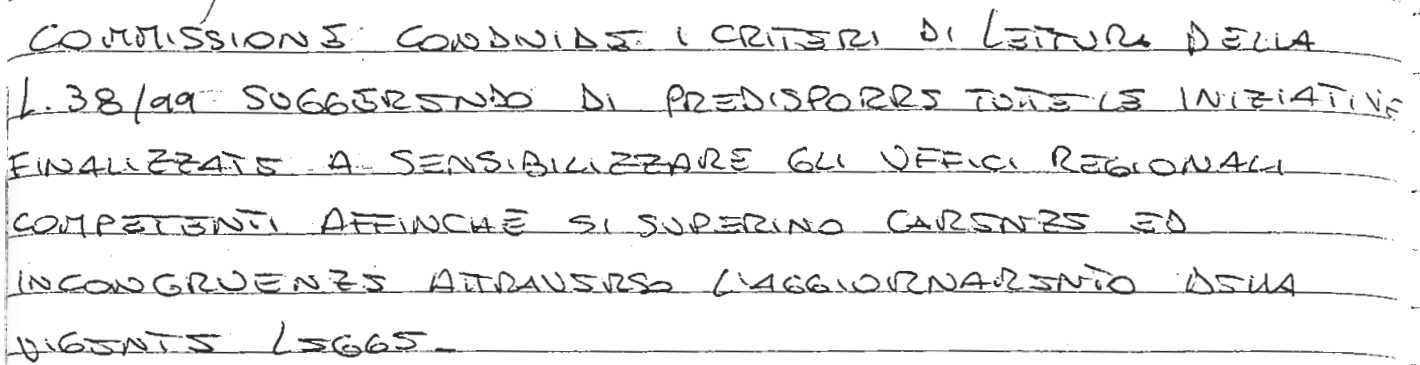 COMMISSIONE CONDIVIDE I CRITERI DI LETTURA DELLA
L. 38/99 SUGGERENDO DI PREDISPORRE TUTTE LE INIZIATIVE
FINALIZZATE A SENSIBILIZZARE GLI UFFICI REGIONALI
COMPETENTI AFFINCHÈ SI SUPERINO CARENZE ED
INCONGRUENZE ATTRAVERSO L'AGGIORNAMENTO DELLA
VIGENTE LEGGE_